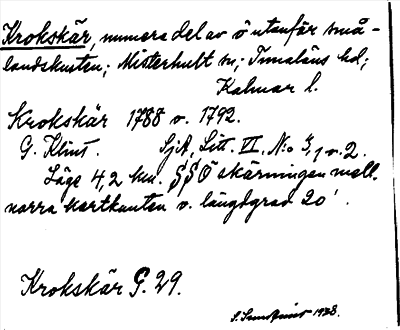 Krokskär, numera del av ö utanför små-
landskusten; Misterhult sn; Tunaläns hd;
Kalmar l.
Krokskär 1788 o. 1792.
G. Klint. SjA, Litt. VI. N:o 3,1 o. 2.
Läge 4,2 km. SSÖ skärningen mell.
norra kartkanten o. längdgrad 20'.
Krokskär G. 29.
1938.